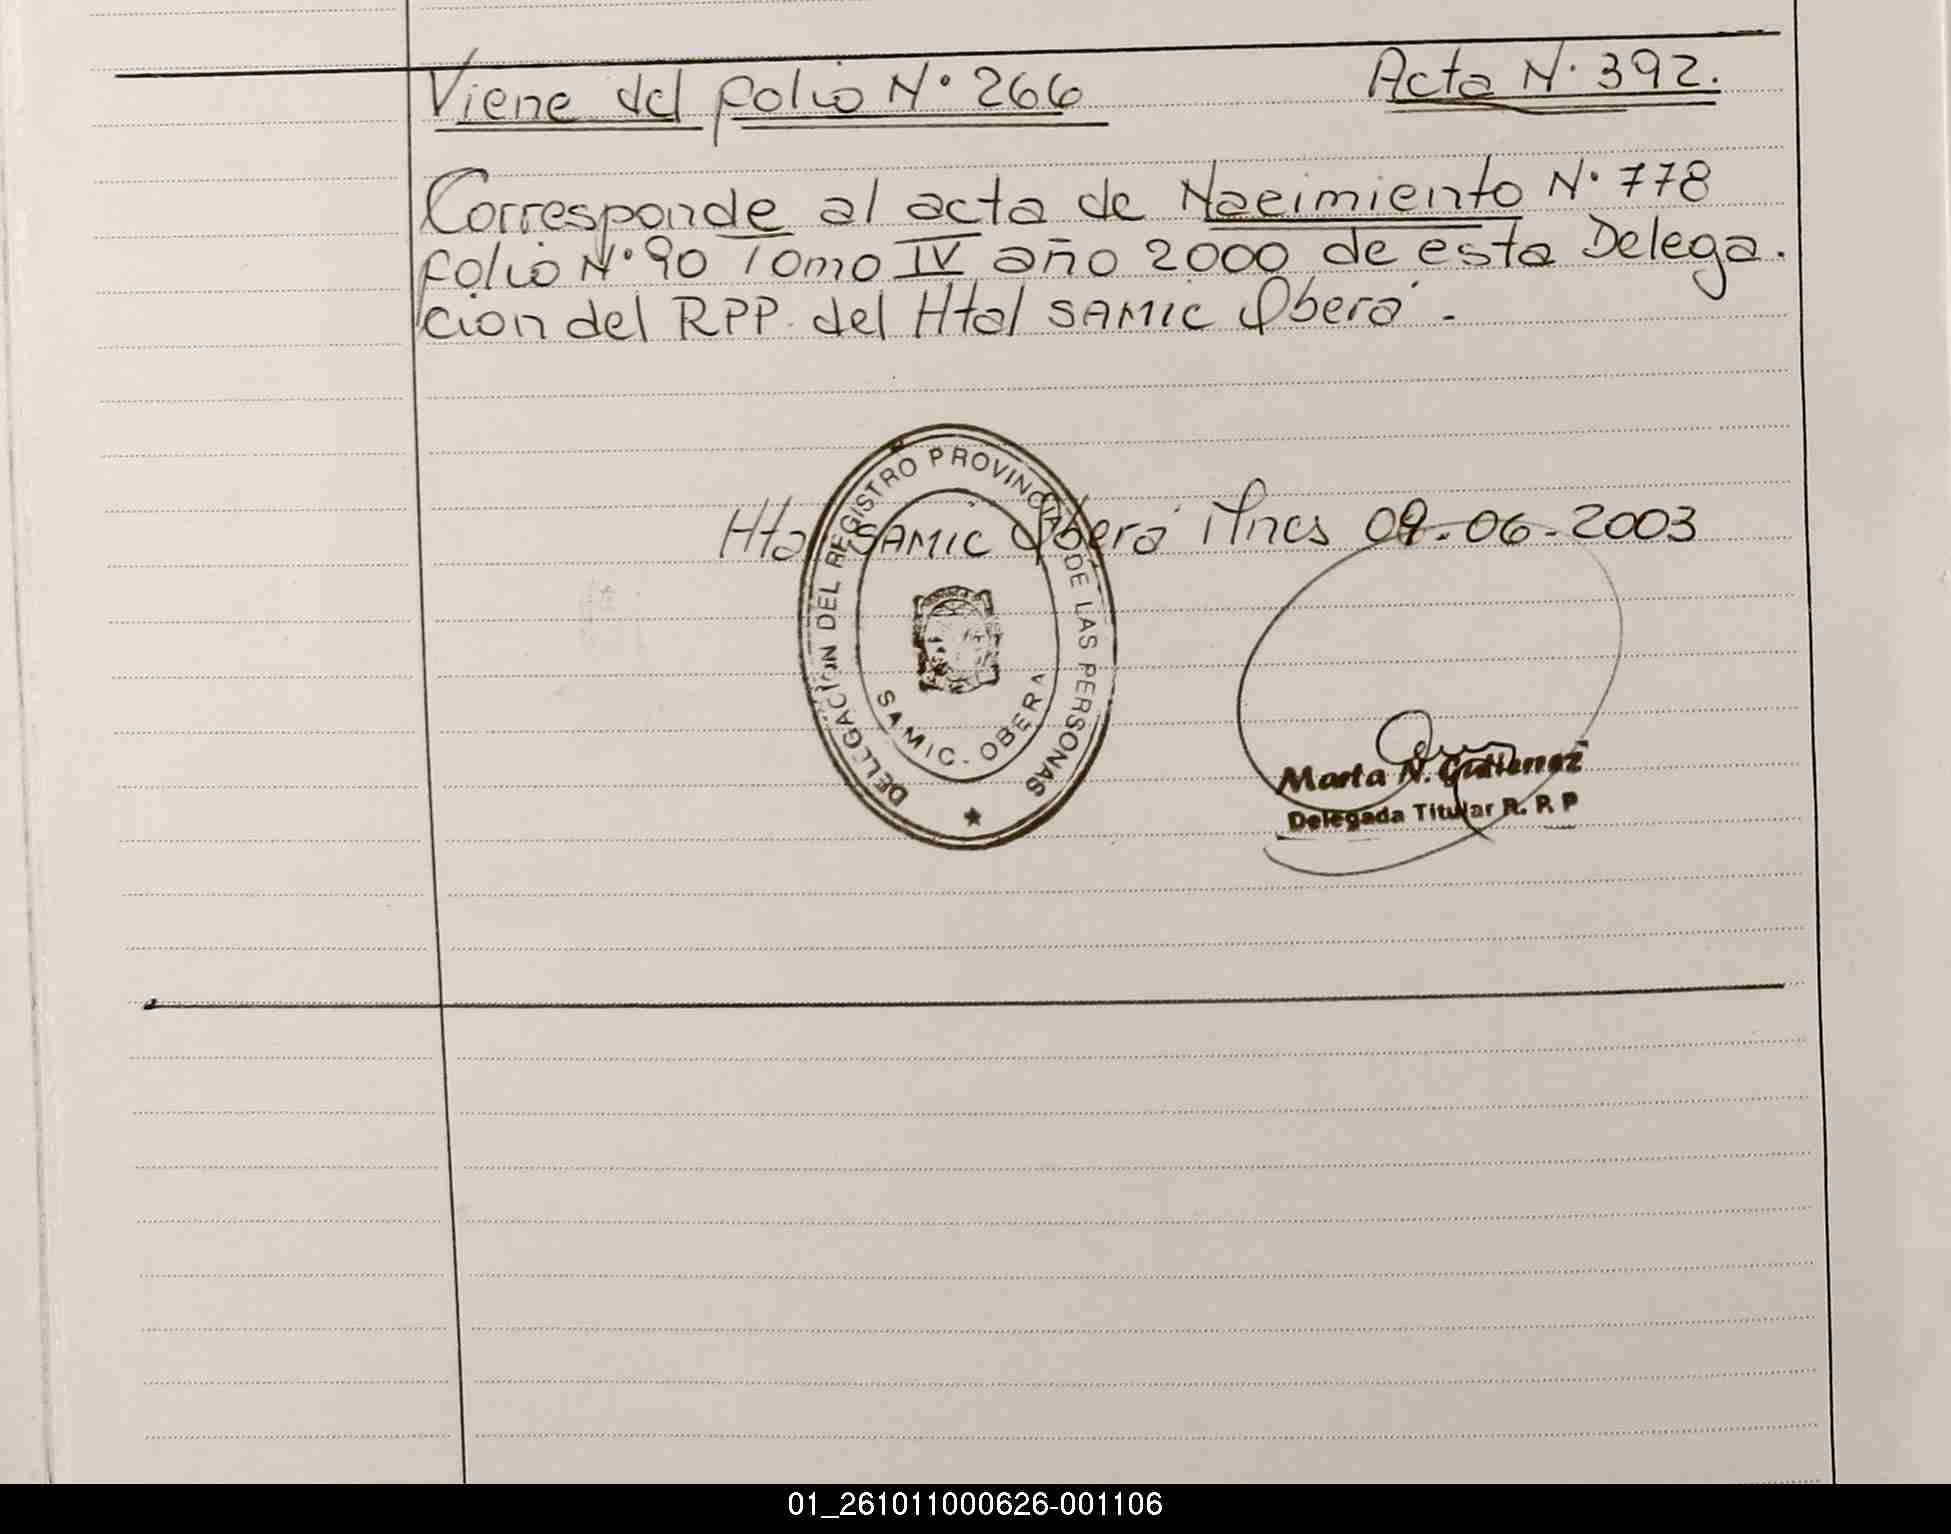 Viene del folio N° 266 Acta N° 392.
Corresponde al acta de Nacimiento N° 778
folio N° 90 Tomo IV año 2000 de esta Delega.
cion del RPP. del Htal SAMIC Oberá.-
Htal SAMIC Oberá Mnes 09-06-2003
DELEGACION DEL REGISTRO PROVINCIAL DE LAS PERSONAS
SAMIC - OBERA
Marta N. Gutierrez
Delegada Titular R. P. P
01_261011000626-001106